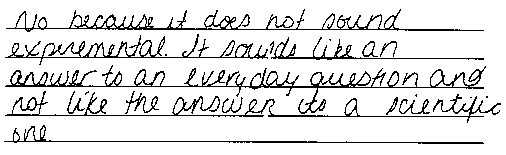 No because it does not sound
expiremental. It sounds like an
answer to an everyday question and
not like the answer to a scientific
one.